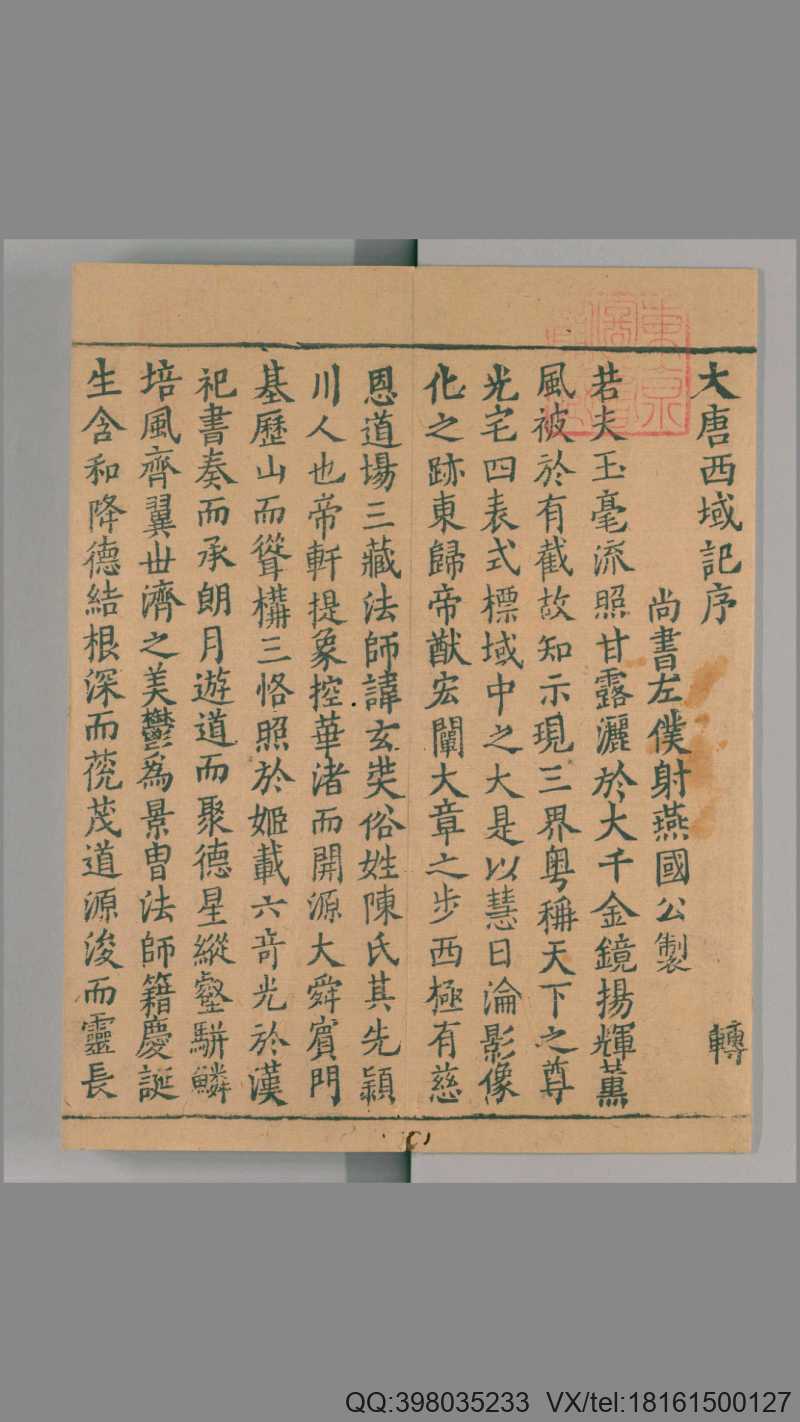 大唐西域記序
轉
尚書左僕射燕國公製
若夫玉毫流照甘露灑於大千金鏡揚輝薰
風被於有截故知示現三界粤稱天下之尊
光宅四表式標域中之大是以慧日淪影像
化之跡東歸帝猷宏闡大章之步西極有慈
恩道場三藏法師諱玄奘俗姓陳氏其先潁
川人也帝軒提象控華渚而開源大舜賓門
基歷山而聳構三恪照於姬載六奇光於漢
祀書奏而承朗月遊道而聚德星縱壑駢鱗
培風齊翼世濟之美鬱為景胄法師籍慶誕
生含和降德結根深而茂道源浚而靈長
東京
QQ:398035233 VX/tel:18161500127